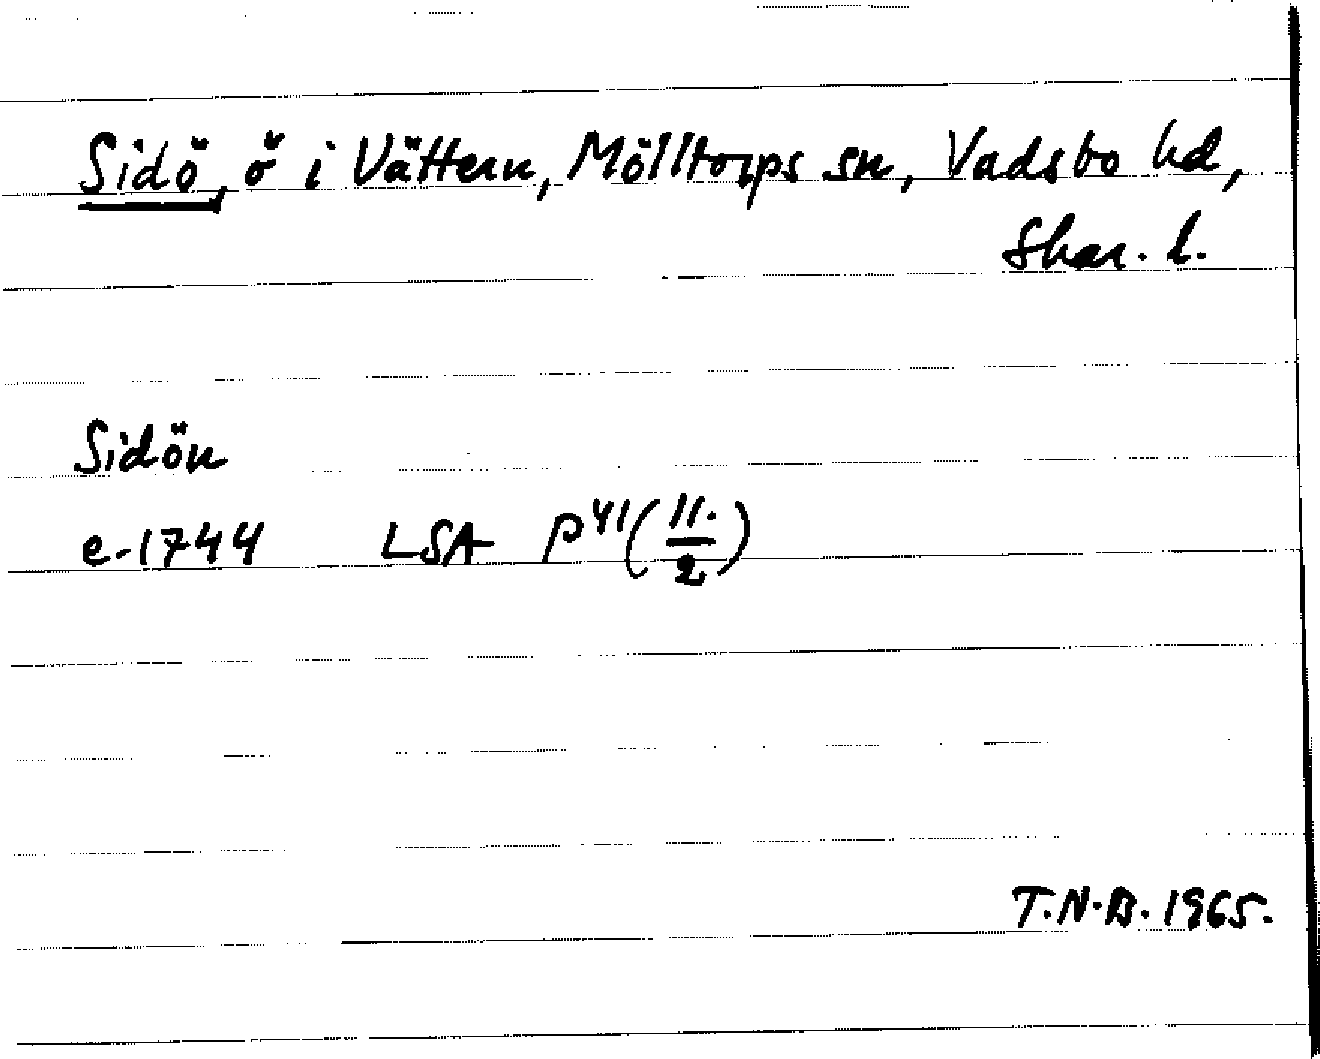 Sidö, ö i Vättern, Mölltorps sn, Vadsbo hd,
Skar. l.
Sidön
e-1744 LSA P41(11./2)
T.N.B. 1965.